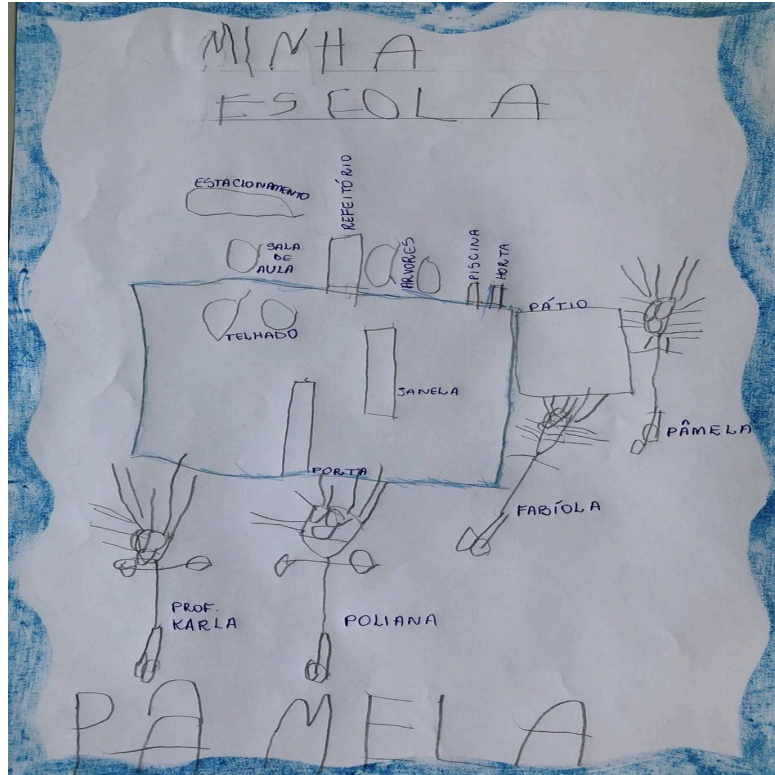 MINHA
ESCOLA
ESTACIONAMENTO
REFEITÓRIO
SALA
DE
AULA
ÁRVORES
PISCINA
HORTA
PÁTIO
TELHADO
JANELA
PORTA
PÂMELA
FABÍOLA
PROF.
KARLA
POLIANA
PÂMELA